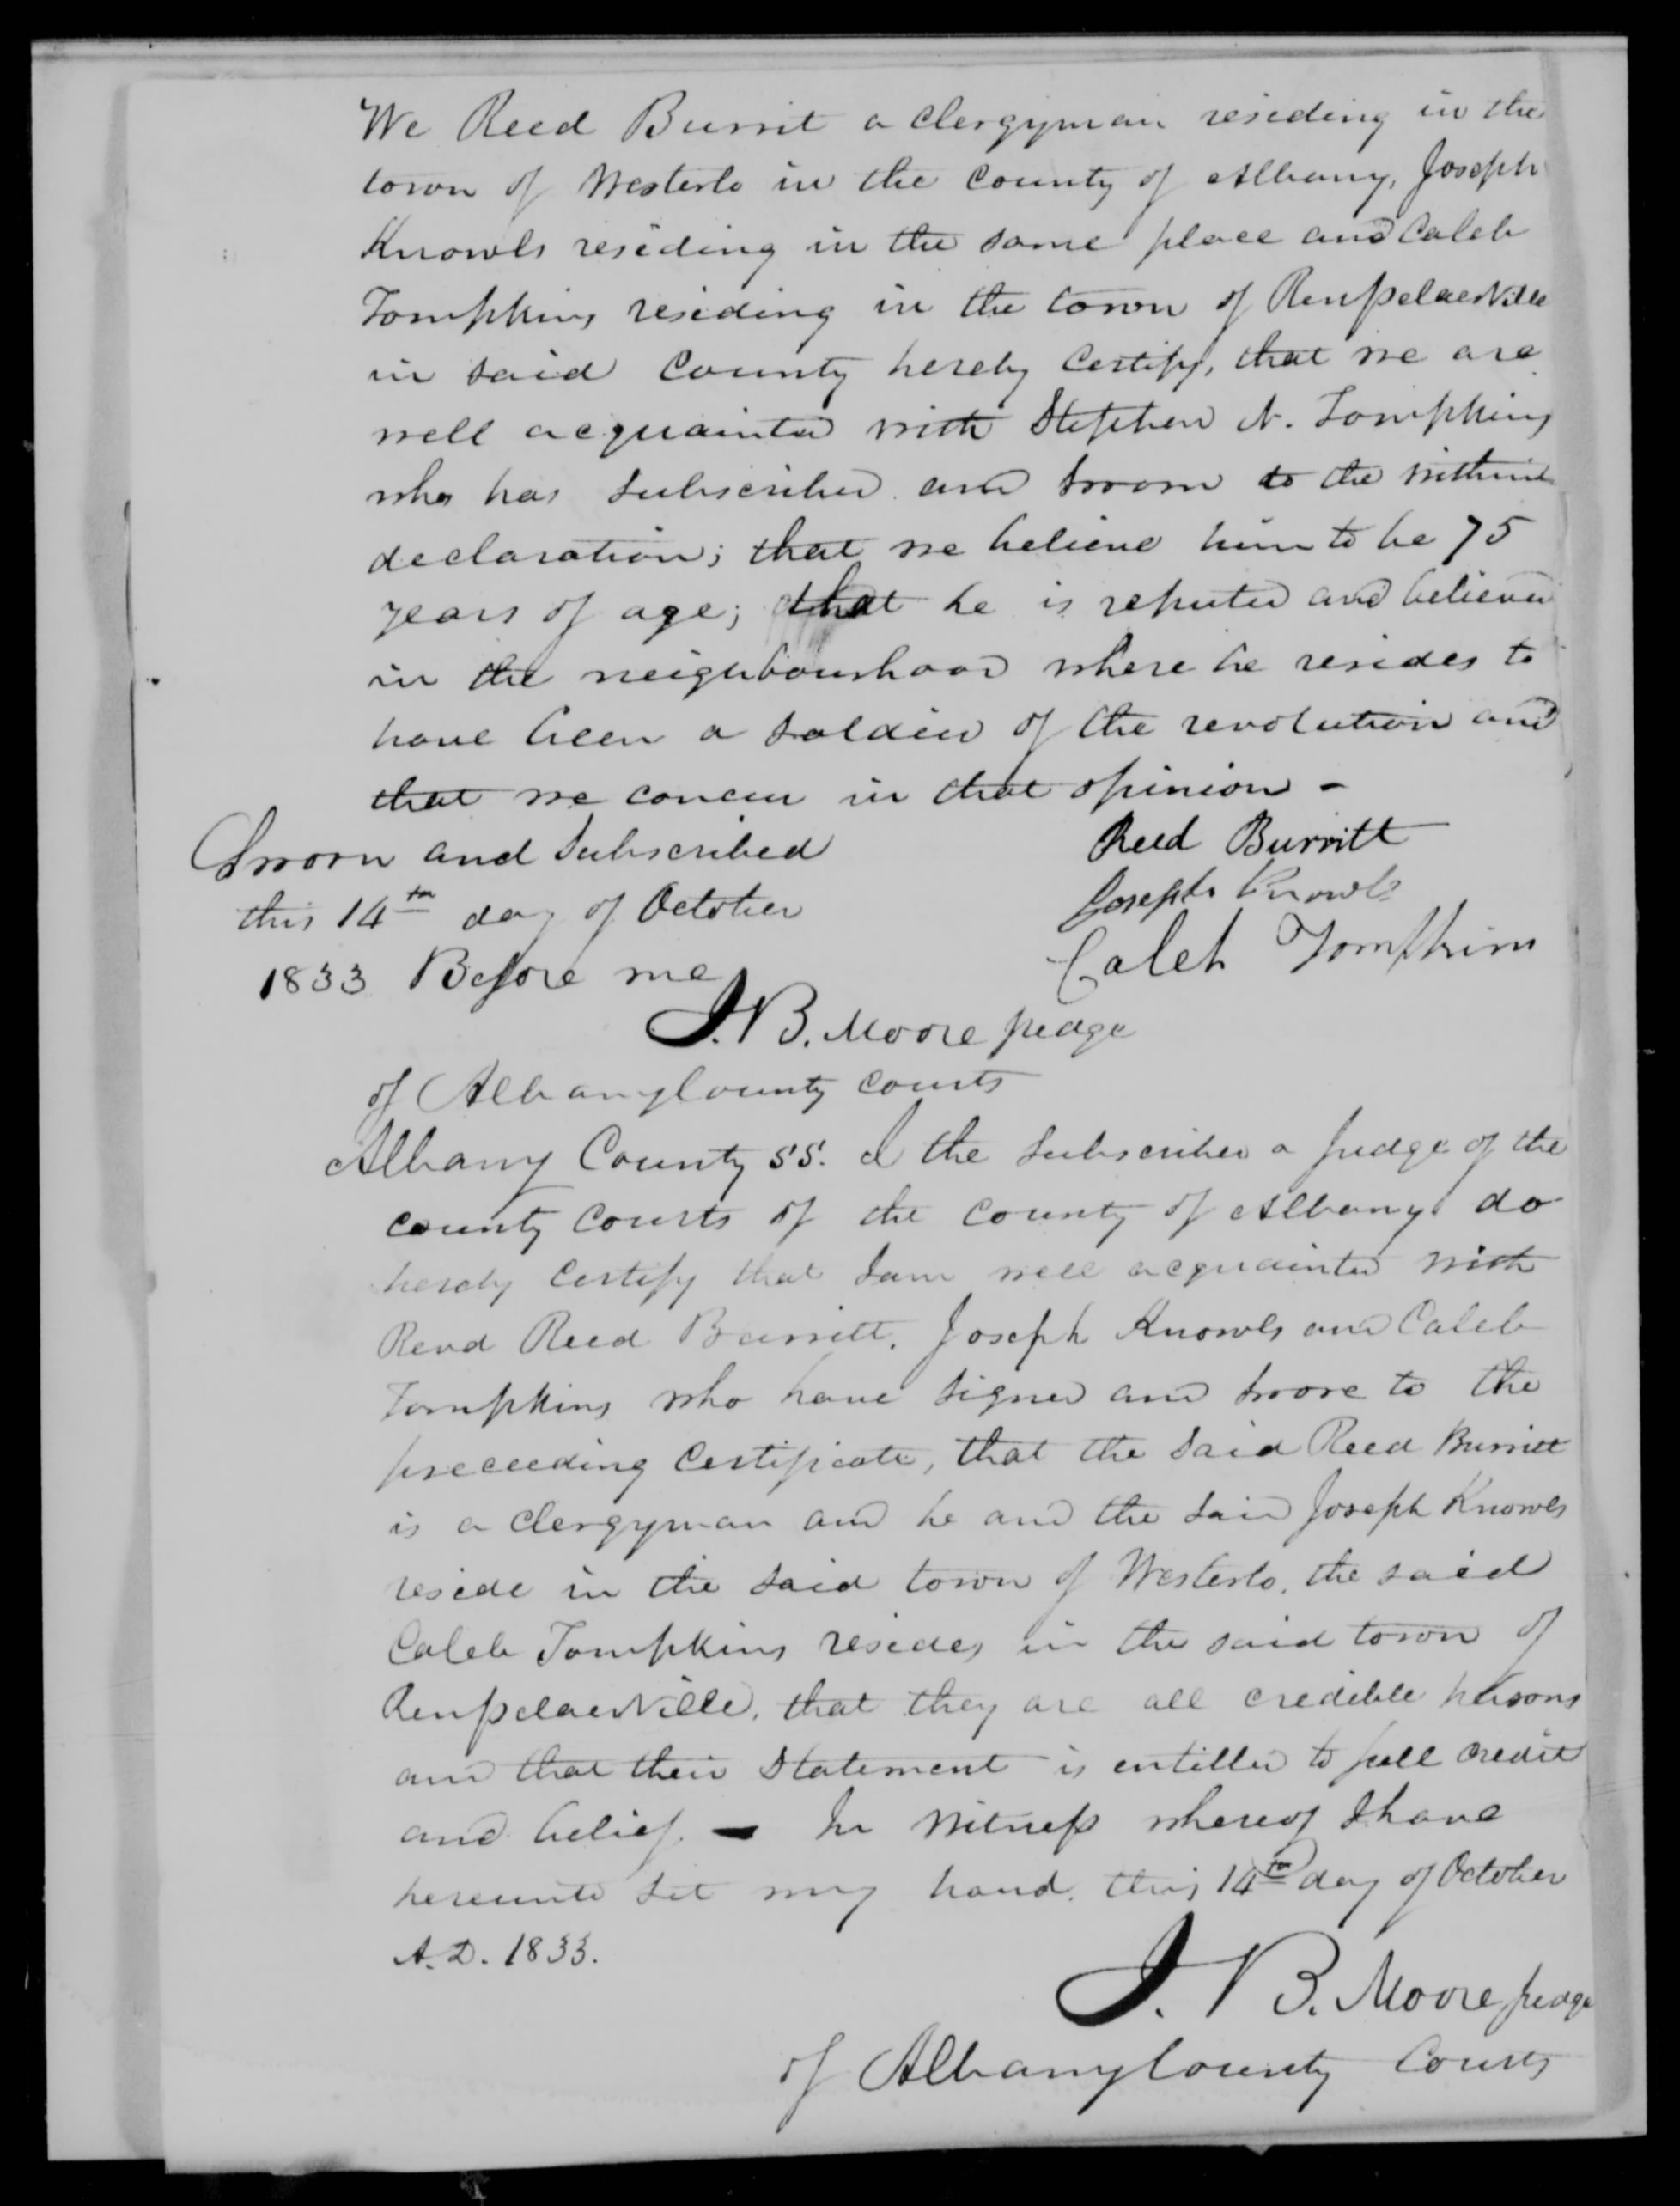 We Reed Burrit a Clergyman residing in the
town of Westerlo in the County of Albany, Joseph
Knowls residing in the same place and Caleb
Tompkins residing in the town of Rensselaerville
in said County hereby Certify, that we are
well acquainted with Stephen N. Tompkins
who has subscribed and sworn to the within
declaration; that we believe him to be 75
years of age; that he is reputed and believed
in the neighbourhood where he resides to
have been a soldier of the revolution and
that we concur in that opinion -
Sworn and Subscribed
this 14th day of October
1833 Before me
Reed Burritt
Joseph Knowls
Caleb Tompkins
J. B. Moore Judge
of Albany County Courts
Albany County SS. I the subscriber a Judge of the
County Courts of the County of Albany do
hereby Certify that I am well acquainted with
Revd Reed Burritt, Joseph Knowls and Caleb
Tompkins who have signed and swore to the
preceeding Certificate, that the said Reed Burritt
is a Clergyman and he and the said Joseph Knowls
reside in the said town of Westerlo, the said
Caleb Tompkins resides in the said town of
Rensselaerville, that they are all credible persons
and that their Statement is entitled to full credit
and belief. - In Witness whereof I have
hereunto set my hand, this 14th day of October
A.D. 1833.
J. B. Moore Judge
of Albany County Courts